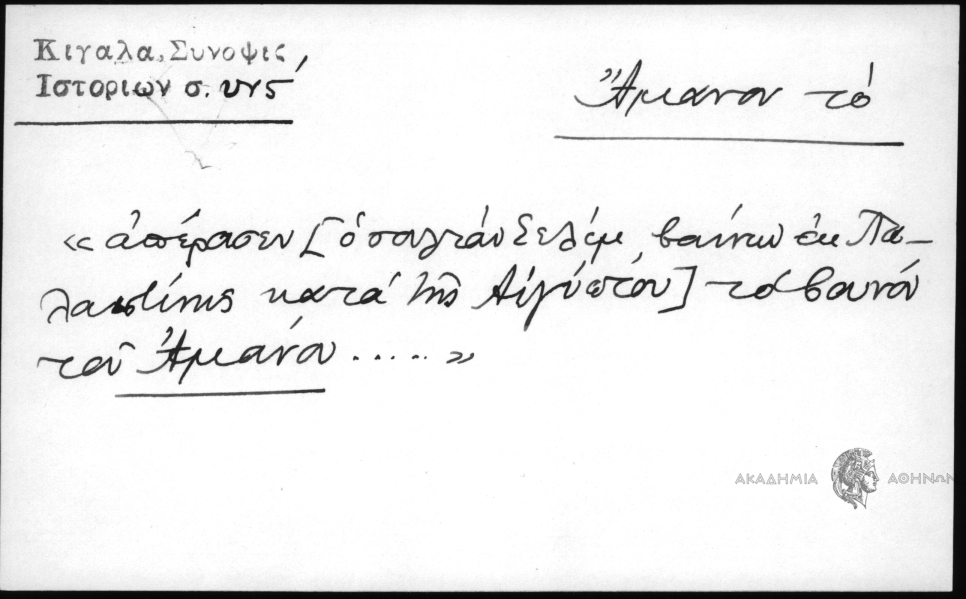 Κιγαλα, Συνοψις
Ιστοριων σ. υνς΄
Ἄμανον τό
«ἀπέρασεν [ὁ σουλτάν Σελήμ, βαίνων ἐκ Πα-
λαιστίνης κατά τῆς Αἰγύπτου] τό βουνό
τοῦ Ἀμάνου ..... »
ΑΚΑΔΗΜΙΑ ΑΘΗΝΩΝ